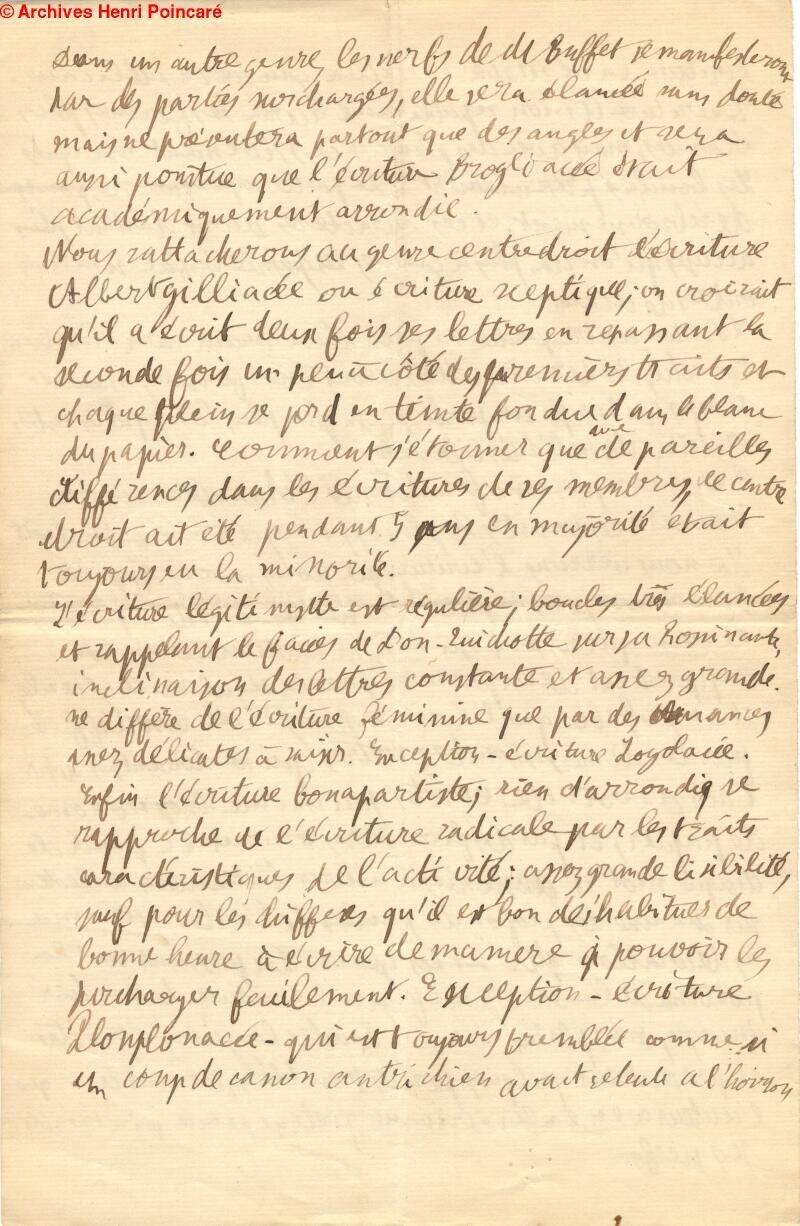 © Archives Henri Poincaré
Dans un autre genre, les nerfs de M Buffet se manifesteront
par des parties surchargées, elle sera élancée sans doute
mais ne présentera partout que des angles et sera
aussi pointue que l'écriture Brogliacée était
académiquement arrondie.
Nous rattacherons au genre centre droit l'écriture
Albertgilliacée ou écriture sceptique; on croirait
qu'il a écrit deux fois ses lettres en repassant la
seconde fois un peu à côté des premiers traits et
chaque plein se perd en teinte fondue dans le blanc
du papier. Comment s'étonner que avec de pareilles
différences dans les écritures de ses membres, le centre
droit ait été pendant 5 ans en majorité était
toujours en la minorité.
L'écriture légitimiste est régulière; boucles très élancées
et rappelant le faciès de Don-Quichotte sur sa Rossinante,
inclinaison des lettres constante et assez grande.
ne diffère de l'écriture féminine que par des nuances
assez délicates à saisir. Exception - écriture Loyolacée.
Enfin l'écriture bonapartiste; rien d'arrondi, se
rapproche de l'écriture radicale par les traits
caractéristiques de l'activité; assez grande lisibilité,
sauf pour les chiffres qu'il est bon de s'habituer de
bonne heure à écrire de manière à pouvoir les
surcharger facilement. Exception - écriture
Plonplonacée - qui est toujours tremblée comme si
un coup de canon autrichien avait retenti à l'horizon